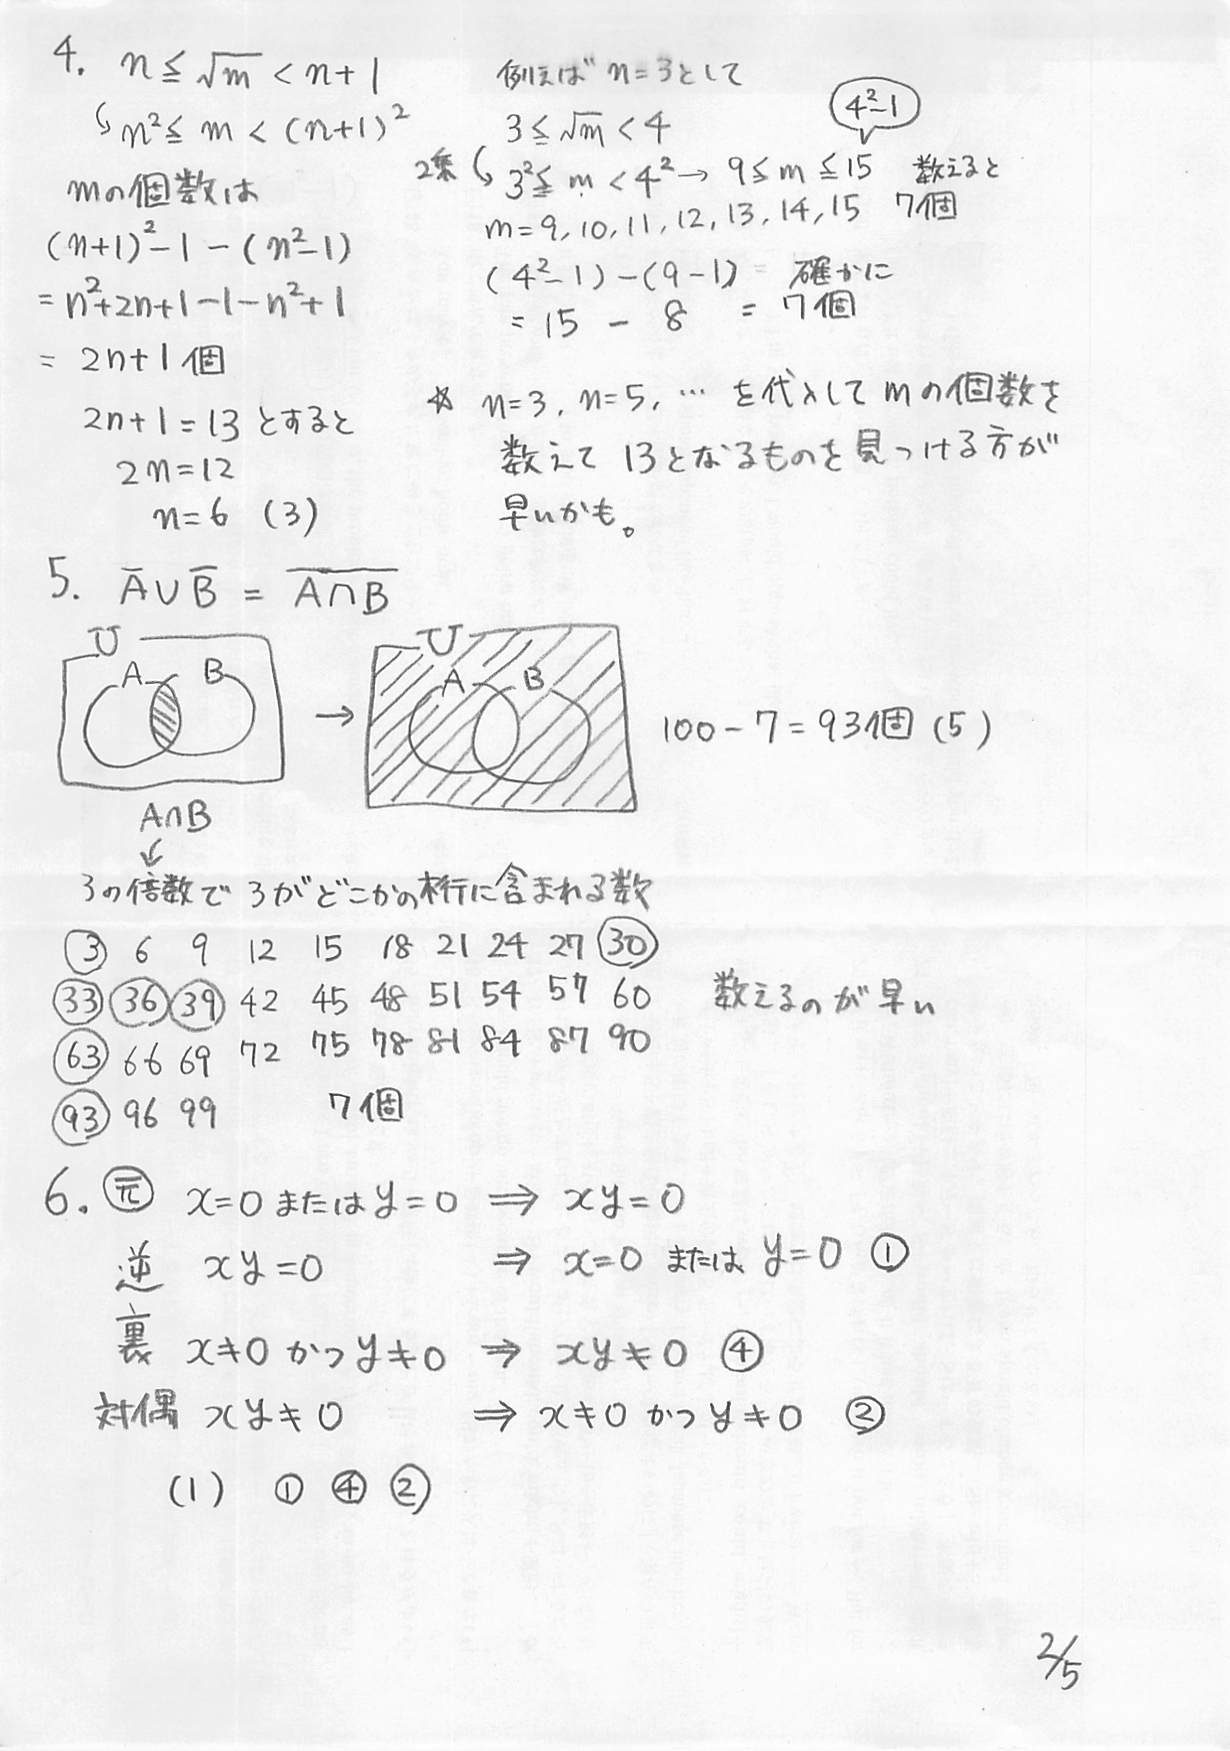 4. n ≦ √m < n+1
n² ≦ m < (n+1)²
mの個数は
(n+1)²-1-(n²-1)
= n²+2n+1-1-n²+1
= 2n+1個
2n+1=13とすると
2n=12
n=6 (3)
例えば n=3として
3≦√m<4
4²-1
2乗 3²≦m<4² → 9≦m≦15 数えると
m=9, 10, 11, 12, 13, 14, 15 7個
(4²-1)-(9-1) = 確かに
= 15 - 8 = 7個
☆ n=3, n=5, … を代入して mの個数を
数えて 13となるものを見つける方が
早いかも。
5. A̅∪B̅ = A̅∩̅B̅
U A B → U A B
100-7=93個 (5)
A∩B
↓
3の倍数で 3がどこかの桁に含まれる数
③ 6 9 12 15 18 21 24 27 ㉚
㉝ ㊱ ㊴ 42 45 48 51 54 57 60 数えるのが早い
63 66 69 72 75 78 81 84 87 90
93 96 99 7個
6. 元 x=0 または y=0 ⇒ xy=0
逆 xy=0 ⇒ x=0 または y=0 ①
裏 x≠0 かつ y≠0 ⇒ xy≠0 ④
対偶 xy≠0 ⇒ x≠0 かつ y≠0 ②
(1) ① ④ ②
2/5